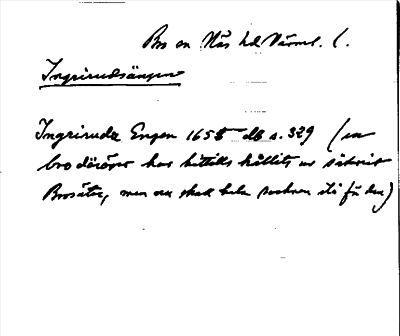 Bro sn Näs hd Värml. l.
Ingrirudsängen
Ingriruda Engen 1655 db s. 329 (en
bro däröver har hittills hållits av
Brosäter, men nu skall hela socknen